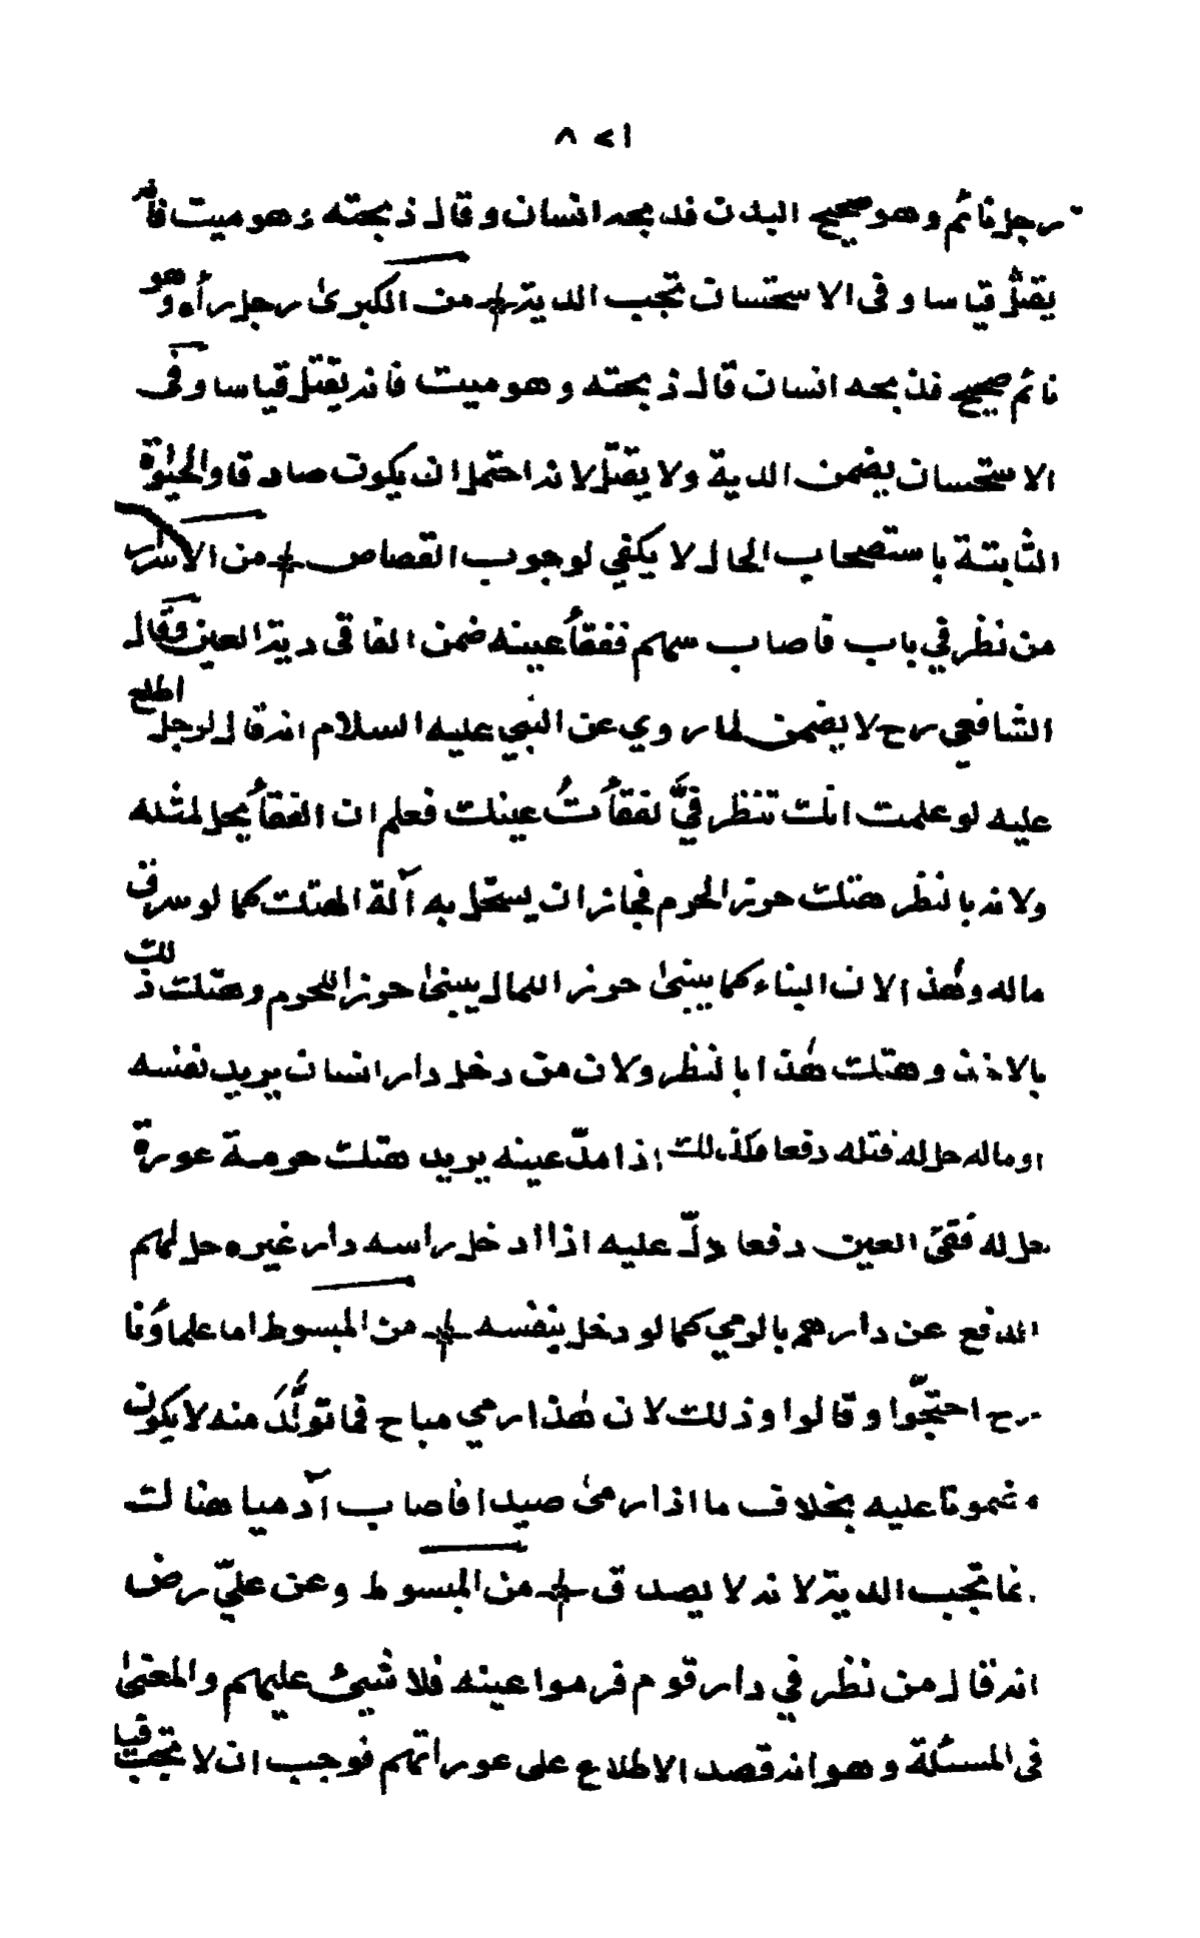 ٨٧١
رجل نائم وهو صحيح البدن فذبحه انسان وقال ذبحته وهو ميت فانه
يقتل قياسا وفى الاستحسان تجب الدية من الكبرىٰ رجل رأه وهو
نائم صحيح فذبحه انسان قال ذبحته وهو ميت فانه يقتل قياسا وفى
الاستحسان يضمن الدية ولا يقتل لانه احتمل ان يكون صادقا والحيٰوة
الثابتة باستصحاب الحال لا يكفي لوجوب القصاص من الاسرار
من نظر في باب فاصاب سهم ففقأ عينه ضمن الفاقى دية العين وقال
الشافعي رح لا يضمن لما روي عن النبي عليه السلام انه قال لرجل اطلع
عليه لو علمت انك تنظر فيَّ لفقأتُ عينك فعلم ان الفقأ يحل لمثله
ولانه بالنظر هتك حرز الحرم فجاز ان يستحل به آلة الهتك كما لو سرق
ماله وهٰذا لان البناء كما يبنىٰ حرز المال يبنىٰ حرز اللحرم وهتك ذلك
بالاخذ وهتك هٰذا بالنظر ولان من دخل دار انسان يريد نفسه
او ماله حل له قتله دفعا فكذلك اذا مدّ عينه يريد هتك حرمة عورة
حل له فقئ العين دفعا دلّ عليه اذا ادخل راسه دار غيره حل لهم
الدفع عن دارهم بالرمي كما لو دخل بنفسه من المبسوط اما علماؤنا
رح احتجّوا وقالوا وذلك لان هٰذا رمي مباح فما تولَّدَ منه لا يكون
مضمونا عليه بخلاف ما اذا رمىٰ صيدا فاصاب آدميا هناك
انما تجب الدية لانه لا يصدق من المبسوط وعن عليّ رض
انه قال من نظر في دار قوم فرموا عينه فلا شيئ عليهم والمعنىٰ
فى المسئلة وهو انه قصد الاطلاع على عوراتهم فوجب ان لا تجب فيها